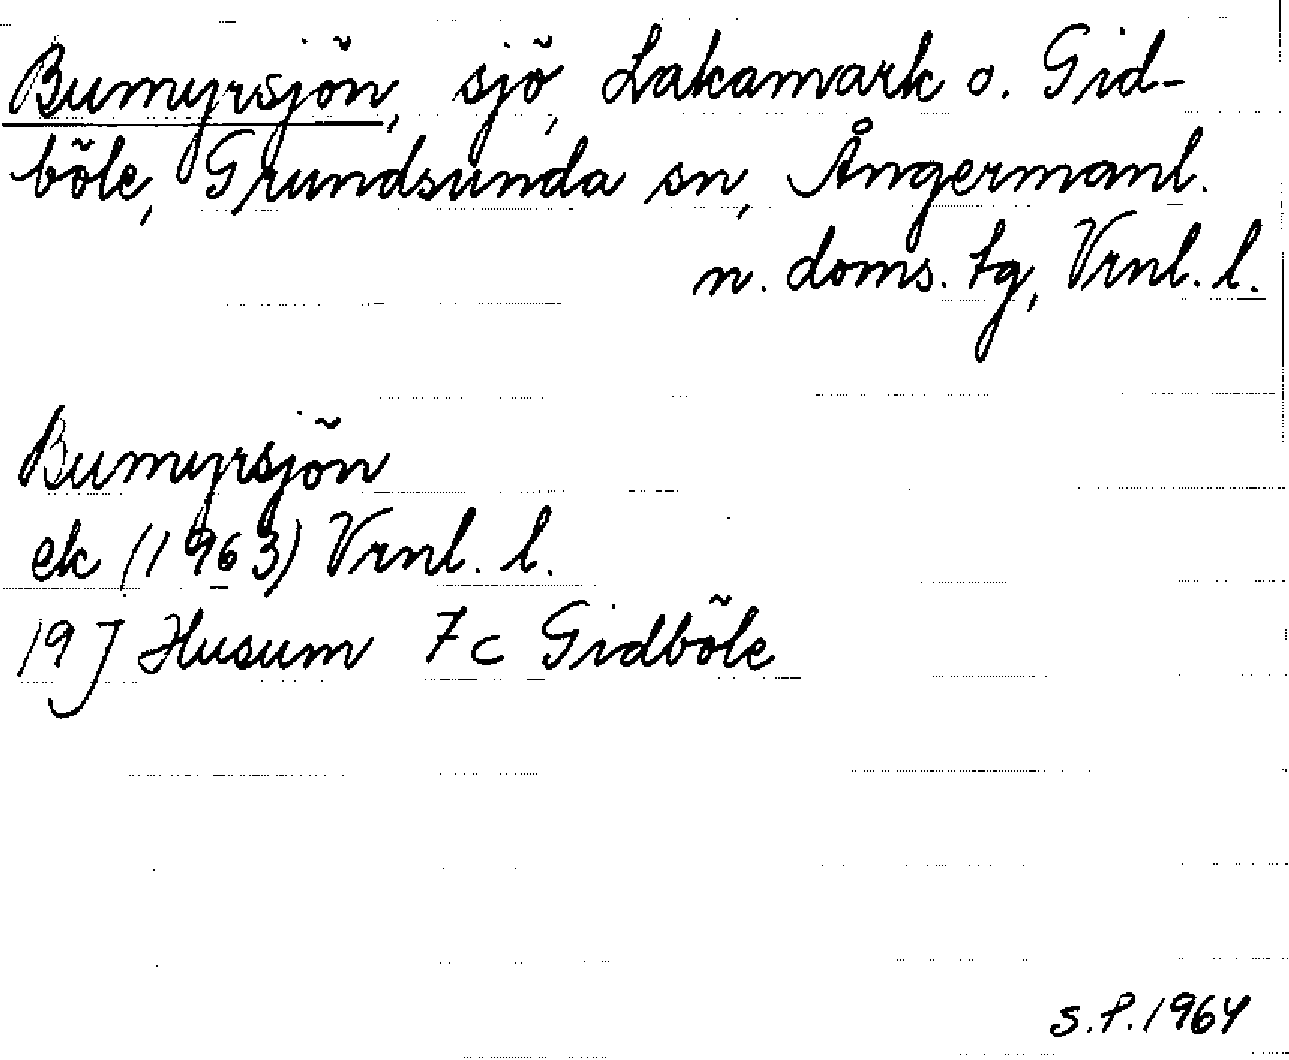 Bumyrsjön, sjö, Lakamark o. Gid-
böle, Grundsunda sn, Ångermanl.
n. doms. tg, Vrnl. l.
Bumyrsjön
ek (1963) Vrnl. l.
19 J Husum 7c Gidböle
S.P. 1964